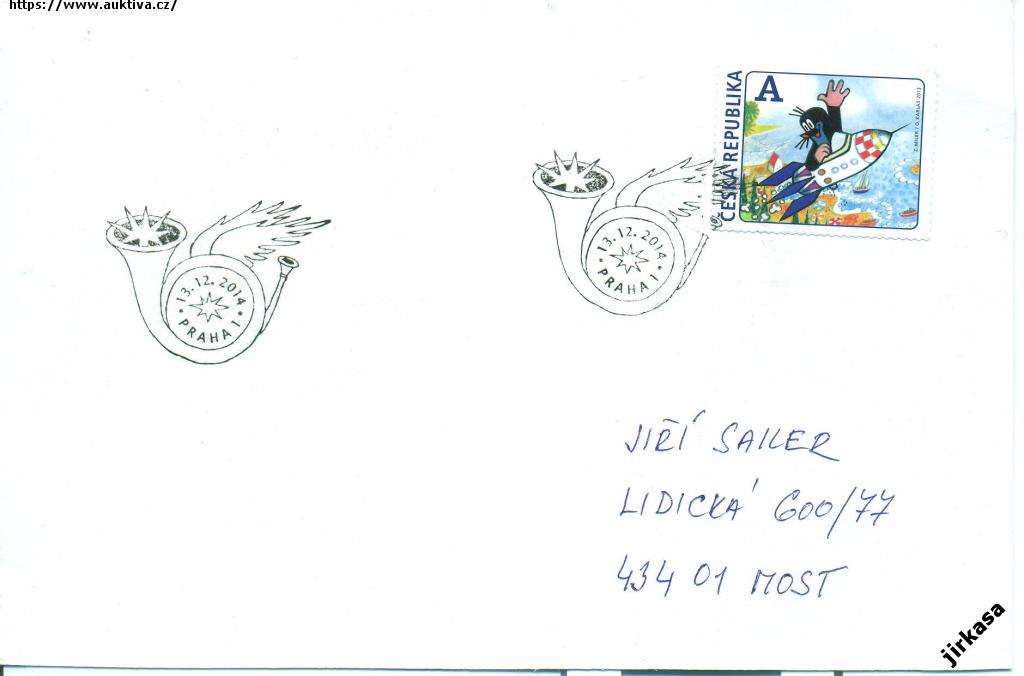 https://www.auktiva.cz/
ČESKÁ REPUBLIKA
A
Z. MILER / O. KARLAS 2013
13. 12. 2014
• PRAHA 1 •
13. 12. 2014
• PRAHA 1 •
JIŘÍ SAILER
LIDICKÁ 600/77
434 01 MOST
jirkasa